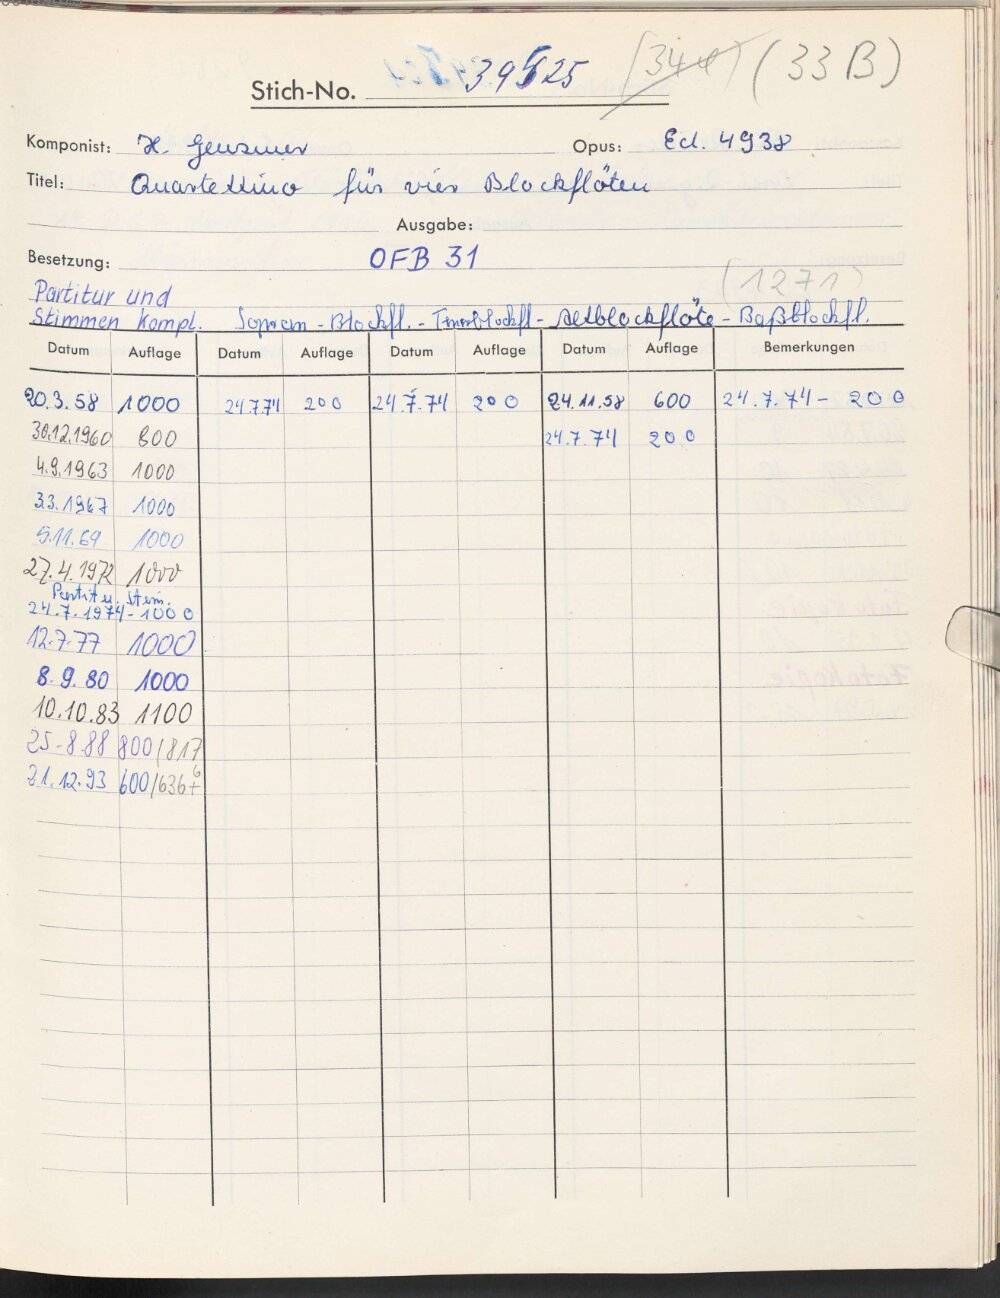 Stich-No. 39525 (344) (33 B)
Komponist: H. Genzmer Opus: Ed. 4938
Titel: Quartettino für vier Blockflöten
Ausgabe:
Besetzung: OFB 31
(1271)
Partitur und
Stimmen kompl. Sopran-Blockfl. - Tenorblockfl - Altblockflöte - Baßblockfl.
Datum Auflage Datum Auflage Datum Auflage Datum Auflage Bemerkungen
20.3.58 1000 24.7.74 200 24.7.74 200 24.11.58 600 24.7.74 - 200
30.12.1960 800 24.7.74 200
4.9.1963 1000
3.3.1967 1000
5.11.69 1000
27.4.1972 1000
Partitu. Stim.
24.7.1974 - 1000
12.7.77 1000
8.9.80 1000
10.10.83 1100
25-8.88 800/817
21.12.93 600/636+6